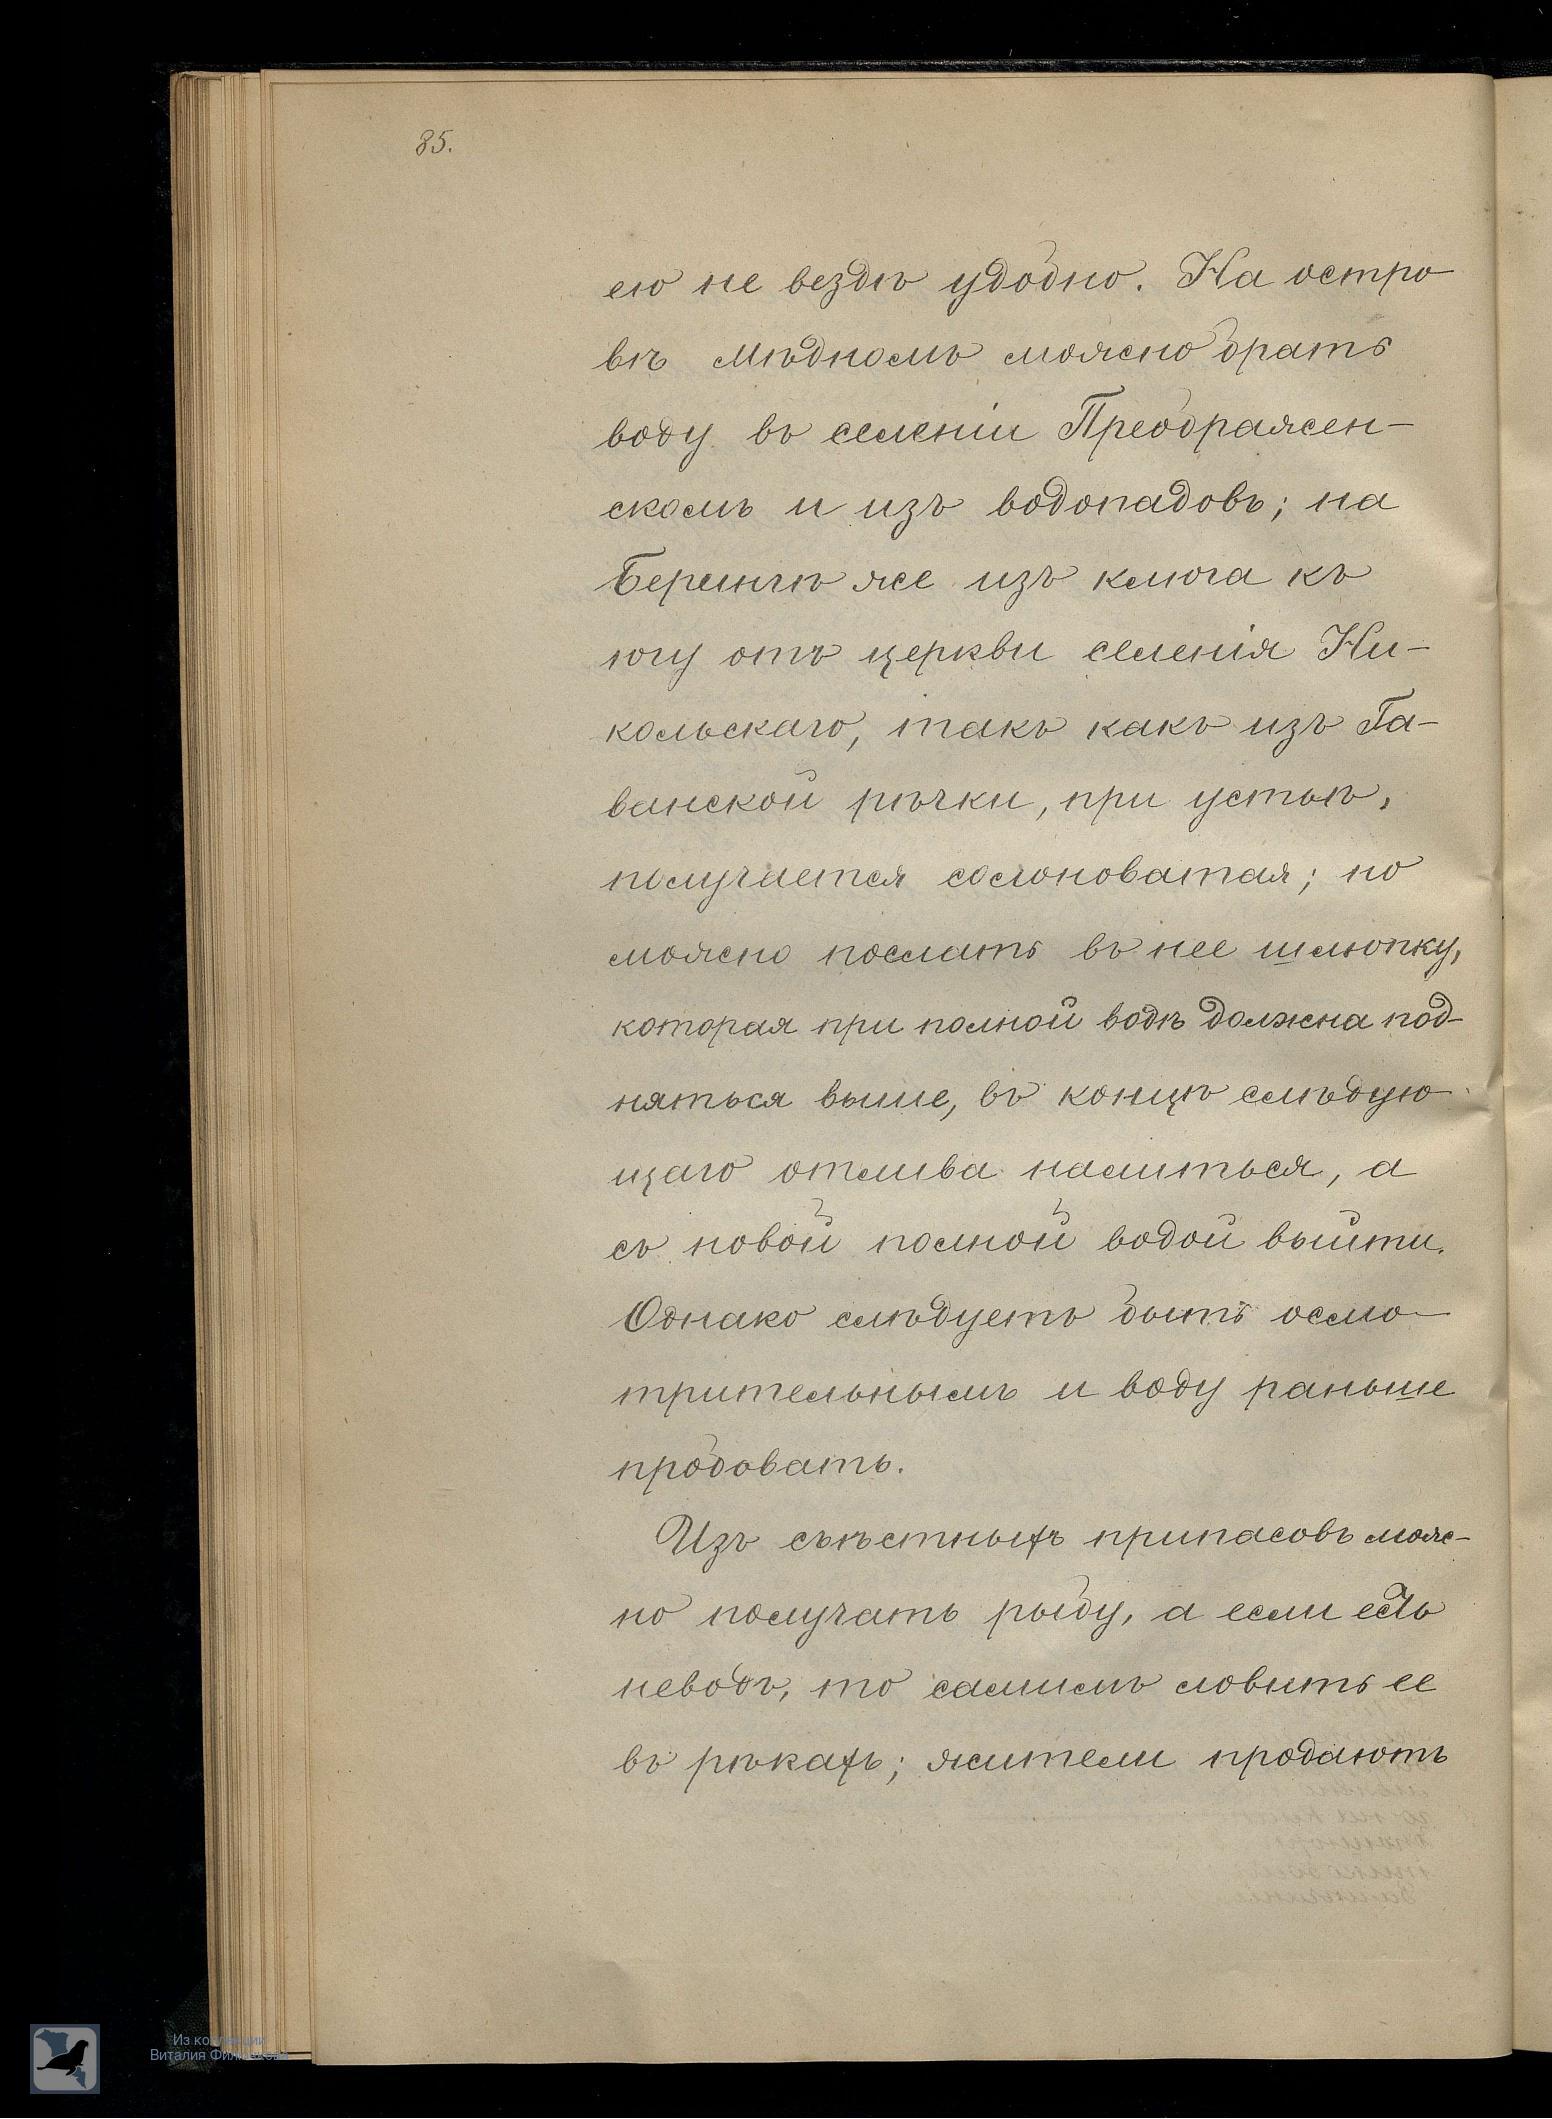 85.
ею не вездѣ удобно. На остро-
вѣ Мѣдномъ можно брать
воду въ селеніи Преображен-
скомъ и изъ водопадовъ; на
Берингѣ же изъ ключа къ
югу отъ церкви селенія Ни-
кольскаго, такъ какъ изъ Га-
ванской рѣчки, при устьѣ,
получается солоноватая; но
можно послать въ нее шлюпку,
которая при полной водѣ должна под-
няться выше, въ концѣ слѣдую-
щаго отлива налиться, а
съ новой полной водой выйти.
Однако слѣдуетъ быть осмо-
трительнымъ и воду раньше
пробовать.
Изъ съѣстныхъ припасовъ мож-
но получать рыбу, а если есть
неводъ, то самимъ ловить ее
въ рѣкахъ; жители продаютъ
Из коллекции
Виталия